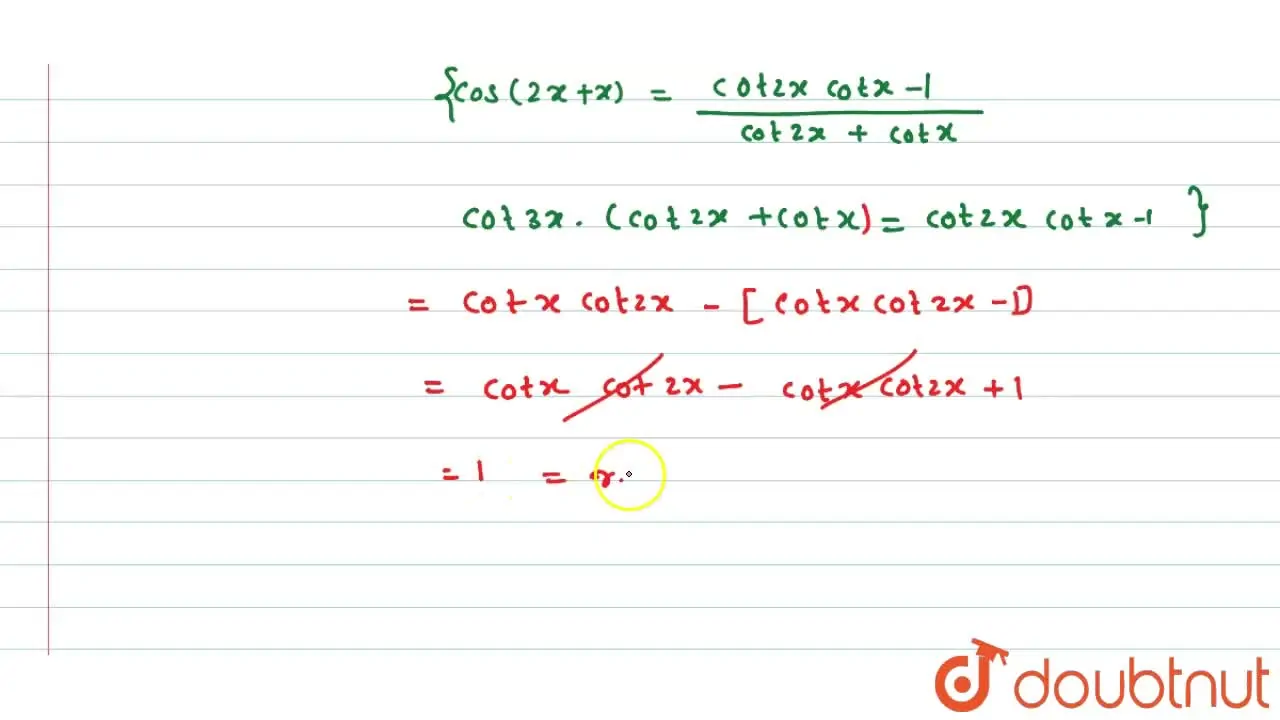 {cos(2x+x) = cot2x cotx -1
cot 2x + cot x
cot 3x . (cot 2x + cot x) = cot2x cot x -1 }
= cot x cot 2x - [cot x cot 2x -1]
= cot x cot 2x - cot x cot 2x + 1
= 1 = r.
doubtnut